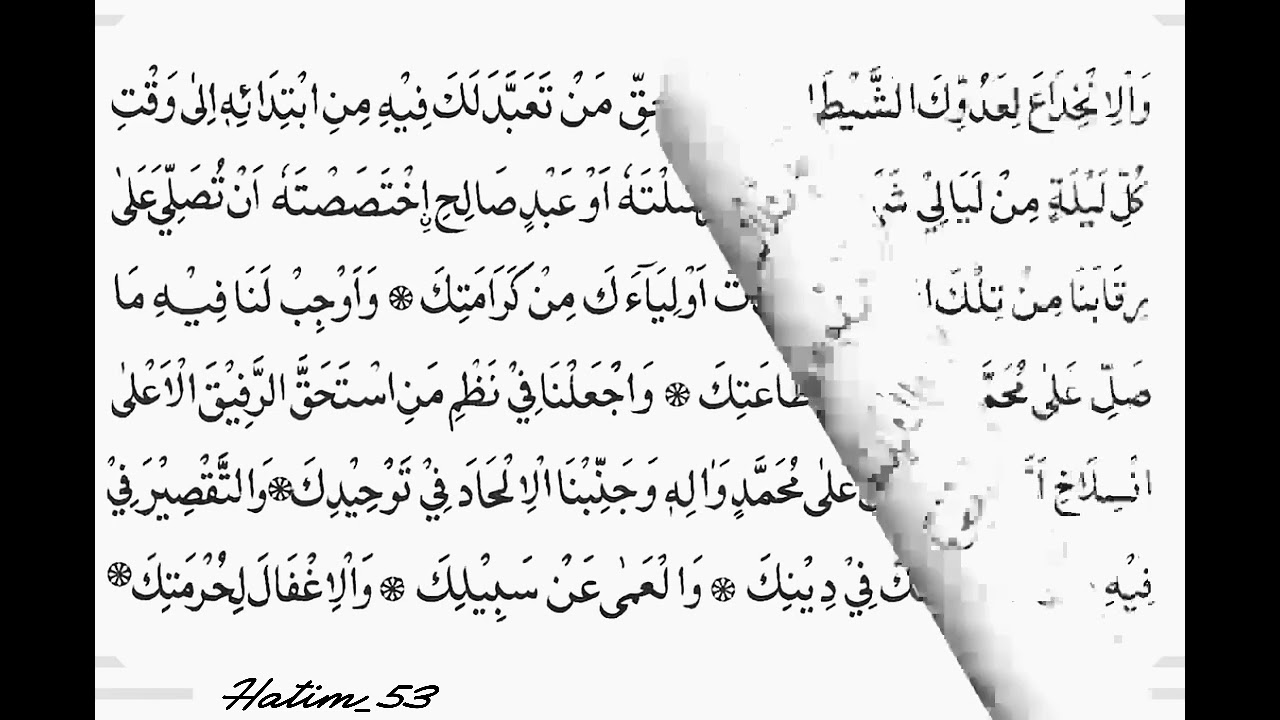 وَالْاِنْخِدَاعَ لِعَدُوِّكَ حَقِّ مَنْ تَعَبَّدَ لَكَ فِيْهِ مِنِ ابْتِدَائِهٖ اِلٰى وَقْتِ
كُلِّ لَيْلَةٍ مِنْ لَيَالِيْ اَوْ عَبْدٍ صَالِحِ ࣙاخْتَصَصْتَهٗ اَنْ تُصَلِّيَ عَلٰى
رِقَابَنَا مِنْ تِلْكَ اَوْلِيَآءَكَ مِنْ كَرَامَتِكَ ۞ وَاَوْجِبْ لَنَا فِيْهِ مَا
صَلِّ عَلٰى طَاعَتِكَ ۞ وَاجْعَلْنَا فِيْ نَظْمِ مَنِ اسْتَحَقَّ الرَّفِيْقَ الْاَعْلٰى
انْسِلَاخِ عَلٰى مُحَمَّدٍ وَاٰلِهٖ وَجَنِّبْنَا الْاِلْحَادَ فِيْ تَوْحِيْدِكَ ۞ وَالتَّقْصِيْرَ فِيْ
فِيْهِ فِيْ دِيْنِكَ ۞ وَالْعَمٰى عَنْ سَبِيْلِكَ ۞ وَالْاِغْفَالَ لِحُرْمَتِكَ ۞
Hatim_53